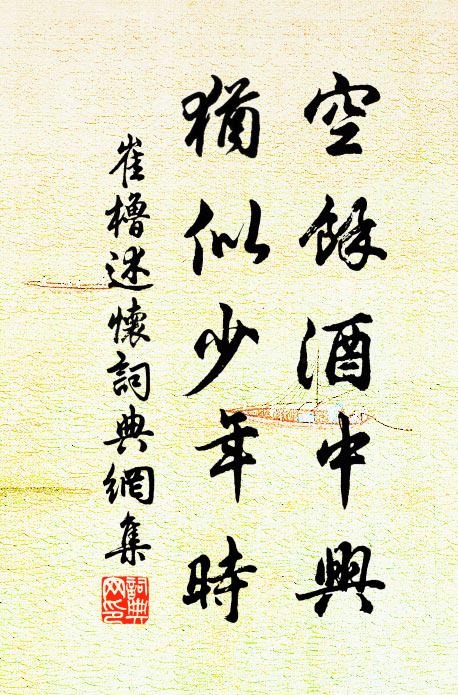 空餘酒中興
猶似少年時
崔櫓述懷詞典網集
詞典網印